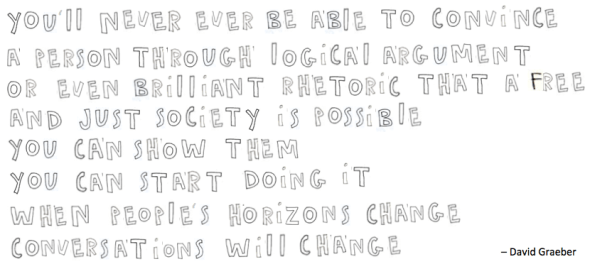 YOU'll NEVER EVER BE ABLE TO CONViNCE
A PERSON THROUGH lOGiCAl ARGUMENT
OR EVEN BRilliANT RHETORiC THAT A FREE
AND JUST SOCiETY iS POSSiBlE
YOU CAN SHOW THEM
YOU CAN START DOiNG iT
WHEN PEOPlE'S HORiZONS CHANGE
CONVERSATiONS Will CHANGE
– David Graeber